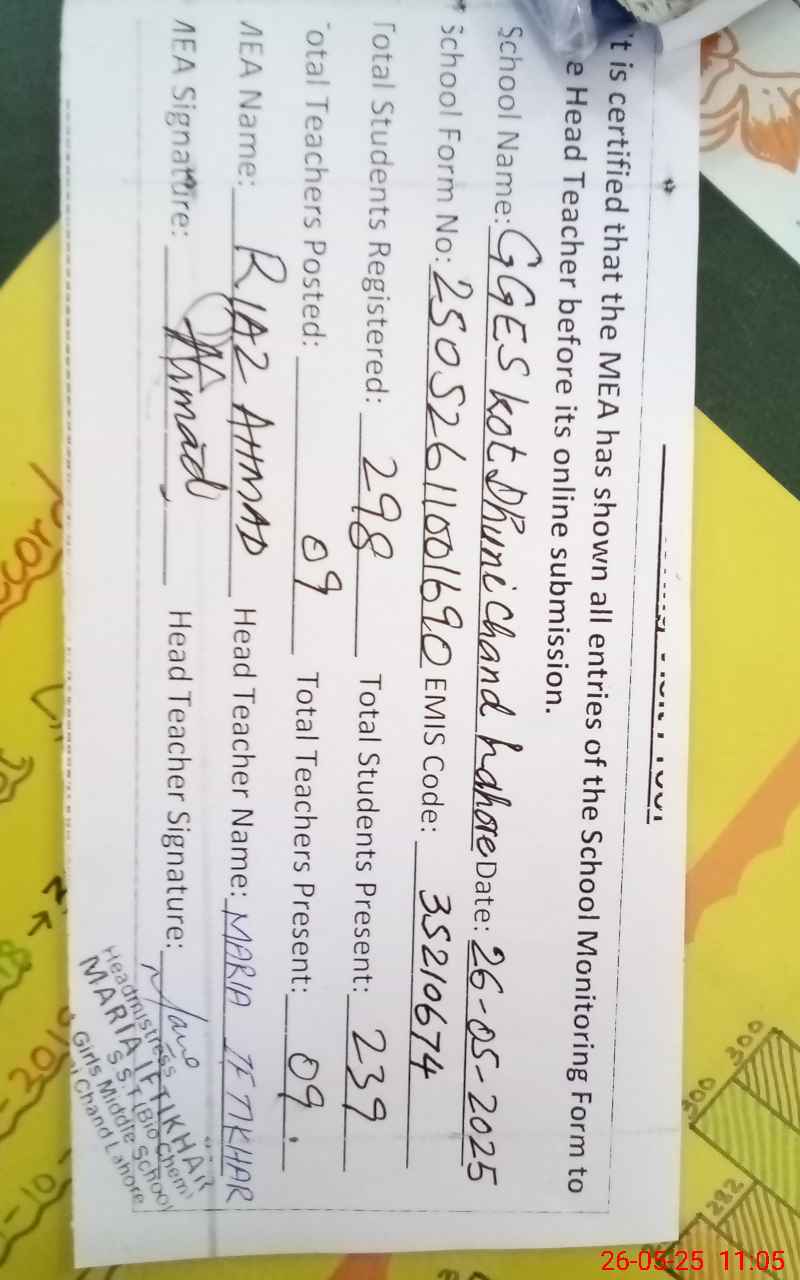 't is certified that the MEA has shown all entries of the School Monitoring Form to
e Head Teacher before its online submission.
School Name: GGES Kot Dhuni Chand Lahore Date: 26-05-2025
School Form No: 25052611001690 EMIS Code: 35210674
Total Students Registered: 298 Total Students Present: 239
Total Teachers Posted: 09 Total Teachers Present: 09.
MEA Name: RIAZ AHMAD Head Teacher Name: MARIA IFTIKHAR
MEA Signature: Ahmad Head Teacher Signature:
Headmistress
MARIA IFTIKHAR
S.S.T (Bio Chem)
Girls Middle School
Chand Lahore
300
300
282
-301
-10
26-05-25 11:05